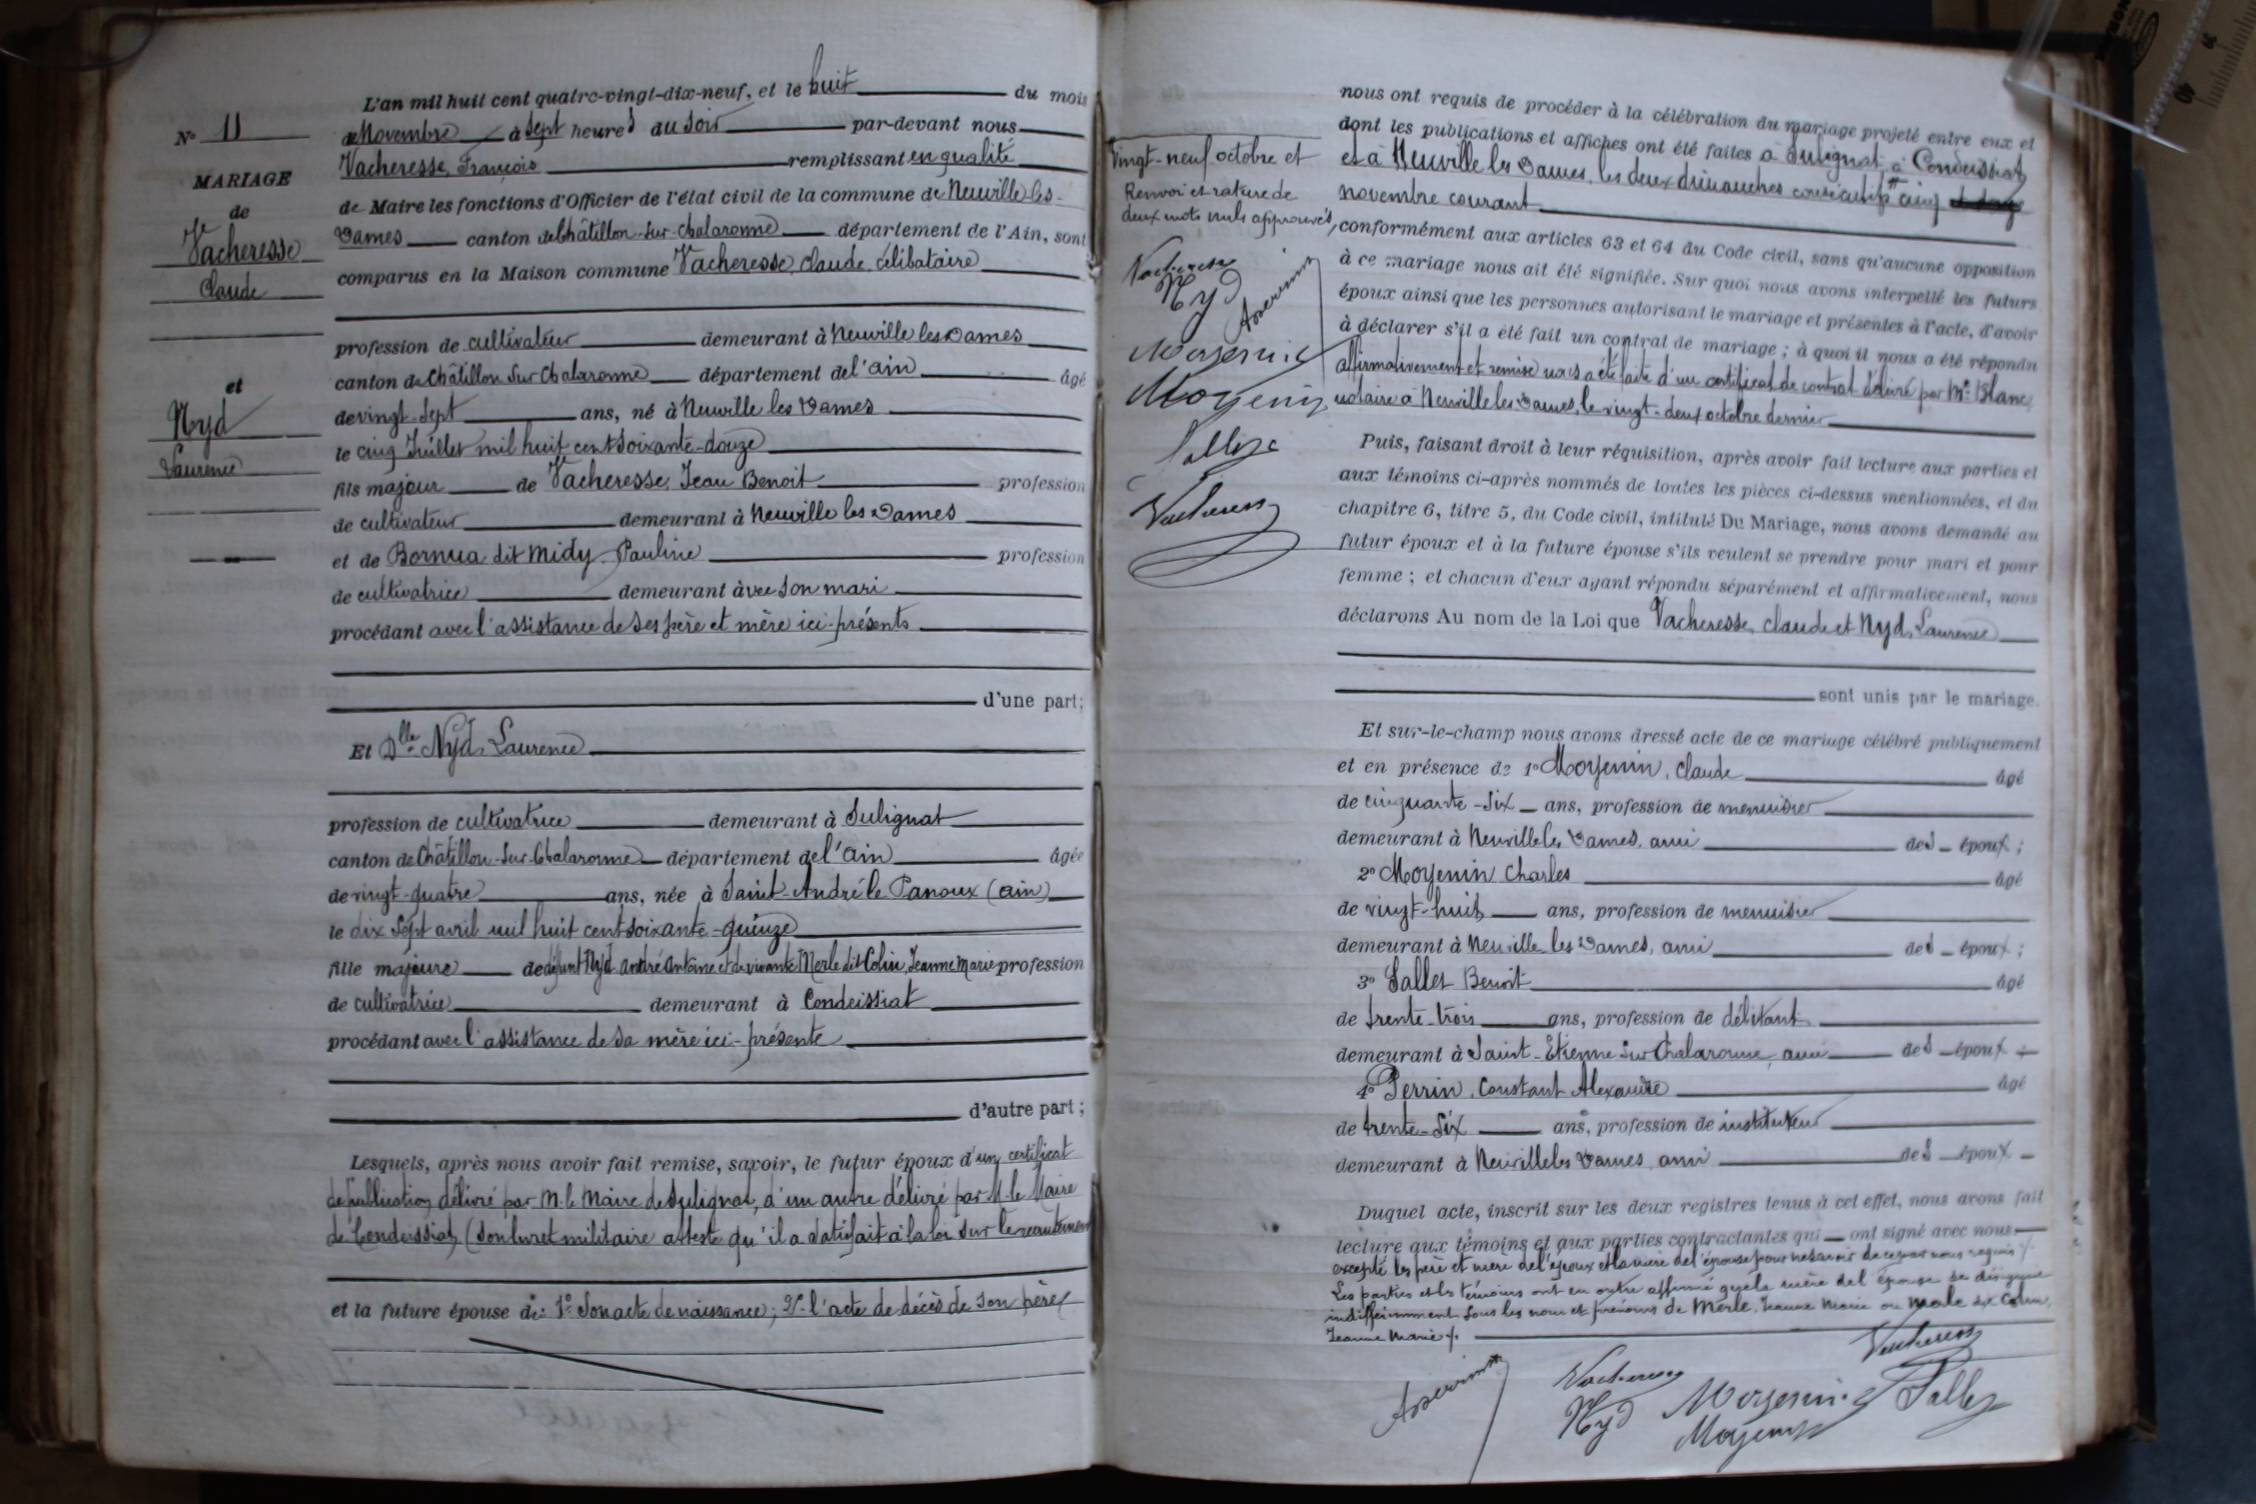 N° 11
MARIAGE
de
Vacheresse
Claude
et
Nyd
Laurence
L'an mil huit cent quatre-vingt-dix-neuf, et le huit du mois
de Novembre à sept heures du soir par-devant nous
Vacheresse, François remplissant en qualité
de Maire les fonctions d'Officier de l'état civil de la commune de Neuville-les-
Dames canton de Châtillon-sur-Chalaronne département de l'Ain, sont
comparus en la Maison commune Vacheresse, Claude, célibataire
profession de cultivateur demeurant à Neuville les Dames
canton de Châtillon sur Chalaronne département de l'ain âgé
de vingt-sept ans, né à Neuville les Dames
le cinq Juillet mil huit cent soixante-douze
fils majeur de Vacheresse, Jean Benoit profession
de cultivateur demeurant à Neuville les Dames
et de Bornua dit Midy, Pauline profession
de cultivatrice demeurant àvec son mari
procédant avec l'assistance de ses père et mère ici-présents
d'une part;
Et Dlle Nyd, Laurence
profession de cultivatrice demeurant à Sulignat
canton de Châtillon-sur-Chalaronne département de l'ain âgée
de vingt-quatre ans, née à Saint-André le Panoux (ain)
le dix sept avril mil huit cent soixante-quinze
fille majeure de défunt Nyd André Antoine et de vivante Merle dit Colin, Jeanne Marie profession
de cultivatrice demeurant à Condeissiat
procédant avec l'assistance de sa mère ici-présente
d'autre part;
Lesquels, après nous avoir fait remise, savoir, le futur époux d'un certificat
de publication délivré par M. le Maire de Sulignat, d'un autre délivré par M. le Maire
de Condeissiat, (son livret militaire atteste qu'il a satisfait à la loi sur le recrutement
et la future épouse de: 1° Son acte de naissance; 2° l'acte de décès de son père
vingt-neuf octobre et
Renvoi et rature de
deux mots nuls approuvés
Vacheresse
Nyd
Moyenin C
Moyenin
Sallez
Vacheresse
nous ont requis de procéder à la célébration du mariage projeté entre eux et
dont les publications et affiches ont été faites à Sulignat, à Condeissiat
et à Neuville les Dames, les deux dimanches consécutifs cinq
novembre courant
conformément aux articles 63 et 64 du Code civil, sans qu'aucune opposition
à ce mariage nous ait été signifiée. Sur quoi nous avons interpellé les futurs
époux ainsi que les personnes autorisant le mariage et présentes à l'acte, d'avoir
à déclarer s'il a été fait un contrat de mariage; à quoi il nous a été répondu
affirmativement et remise nous a été faite d'un certificat de contrat délivré par Me Blanc,
notaire à Neuville les Dames, le vingt-deux octobre dernier
Puis, faisant droit à leur réquisition, après avoir fait lecture aux parties et
aux témoins ci-après nommés de toutes les pièces ci-dessus mentionnées, et du
chapitre 6, titre 5, du Code civil, intitulé Du Mariage, nous avons demandé au
futur époux et à la future épouse s'ils veulent se prendre pour mari et pour
femme; et chacun d'eux ayant répondu séparément et affirmativement, nous
déclarons Au nom de la Loi que Vacheresse, Claude et Nyd, Laurence
sont unis par le mariage.
Et sur-le-champ nous avons dressé acte de ce mariage célébré publiquement
et en présence de 1° Moyenin, Claude âgé
de cinquante-six ans, profession de menuisier
demeurant à Neuville les Dames, ami des époux;
2° Moyenin Charles âgé
de vingt-huit ans, profession de menuisier
demeurant à Neuville les Dames, ami des époux;
3° Sallet Benoit âgé
de trente-trois ans, profession de débitant
demeurant à Saint-Etienne sur Chalaronne, ami des époux
4° Perrin, Constant Alexandre âgé
de trente-six ans, profession de instituteur
demeurant à Neuville les Dames, ami des époux
Duquel acte, inscrit sur les deux registres tenus à cet effet, nous avons fait
lecture aux témoins et aux parties contractantes qui ont signé avec nous
excepté les père et mère de l'époux et la mère de l'épouse pour ne savoir de ce par nous requis
Les parties et les témoins ont en outre affirmé que la mère de l'épouse se désigne
indifféremment sous les nom et prénoms de Merle, Jeanne Marie ou Merle dit Colin,
Jeanne Marie
Vacheresse
Vacheresse
Nyd
Moyenin C
Moyenin
Sallez